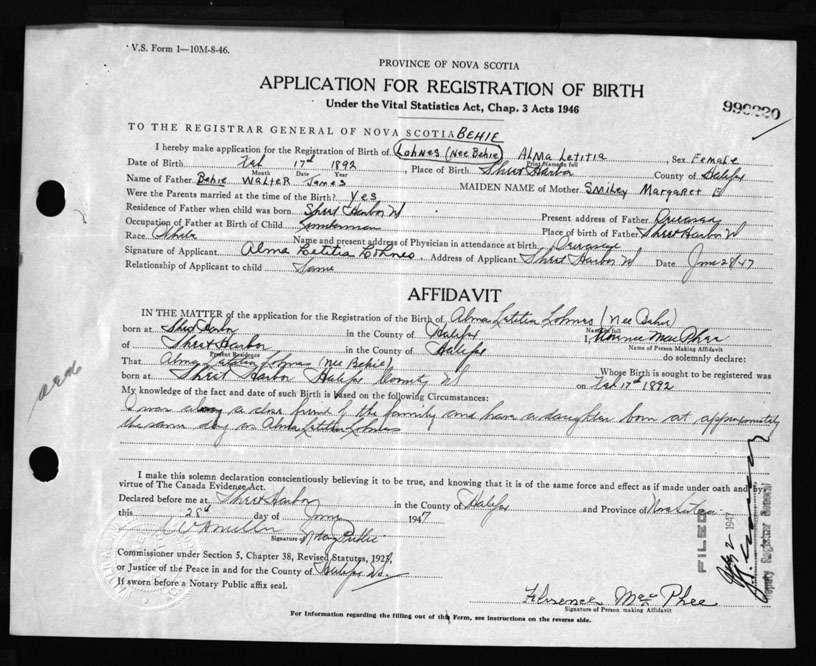 V.S. Form 1—10M-8-46.
PROVINCE OF NOVA SCOTIA
APPLICATION FOR REGISTRATION OF BIRTH
Under the Vital Statistics Act, Chap. 3 Acts 1946
990220
TO THE REGISTRAR GENERAL OF NOVA SCOTIA BEHIE
I hereby make application for the Registration of Birth of Lohnes (Nee Behie) Alma Letitia, Sex Female
Print Name in full
Date of Birth Feb 17th 1892, Place of Birth Sheet Harbor County of Halifax
Month Date Year
Name of Father Behie Walter James MAIDEN NAME of Mother Smiley Margaret E
Were the Parents married at the time of the Birth? Yes
Residence of Father when child was born Sheet Harbor NS Present address of Father Deceased
Occupation of Father at Birth of Child Lumberman Place of birth of Father Sheet Harbor NS
Race White Name and present address of Physician in attendance at birth Deceased
Signature of Applicant Alma Letitia Lohnes, Address of Applicant Sheet Harbor NS Date June 28/47
Relationship of Applicant to child Same
AFFIDAVIT
IN THE MATTER of the application for the Registration of the Birth of Alma Letitia Lohnes (Nee Behie)
Name in full
born at Sheet Harbor in the County of Halifax I, Florence MacPhee
Name of Person Making Affidavit
of Sheet Harbor in the County of Halifax do solemnly declare:
Present Residence
That Alma Letitia Lohnes (nee Behie) Whose Birth is sought to be registered was
born at Sheet Harbor Halifax County NS on Feb 17th 1892
My knowledge of the fact and date of such Birth is based on the following Circumstances:
I was a close friend of the family and have a daughter born at approximately
the same day as Alma Letitia Lohnes
I make this solemn declaration conscientiously believing it to be true, and knowing that it is of the same force and effect as if made under oath and by
virtue of The Canada Evidence Act.
Declared before me at Sheet Harbor in the County of Halifax and Province of Nova Scotia
this 28th day of June 1947
Signature of Notary Public
Commissioner under Section 5, Chapter 38, Revised Statutes, 1923,
or Justice of the Peace in and for the County of Halifax NS.
If sworn before a Notary Public affix seal.
FILED
July 2 1947
Deputy Registrar General
Florence MacPhee
Signature of Person making Affidavit
For Information regarding the filling out of this Form, see instructions on the reverse side.